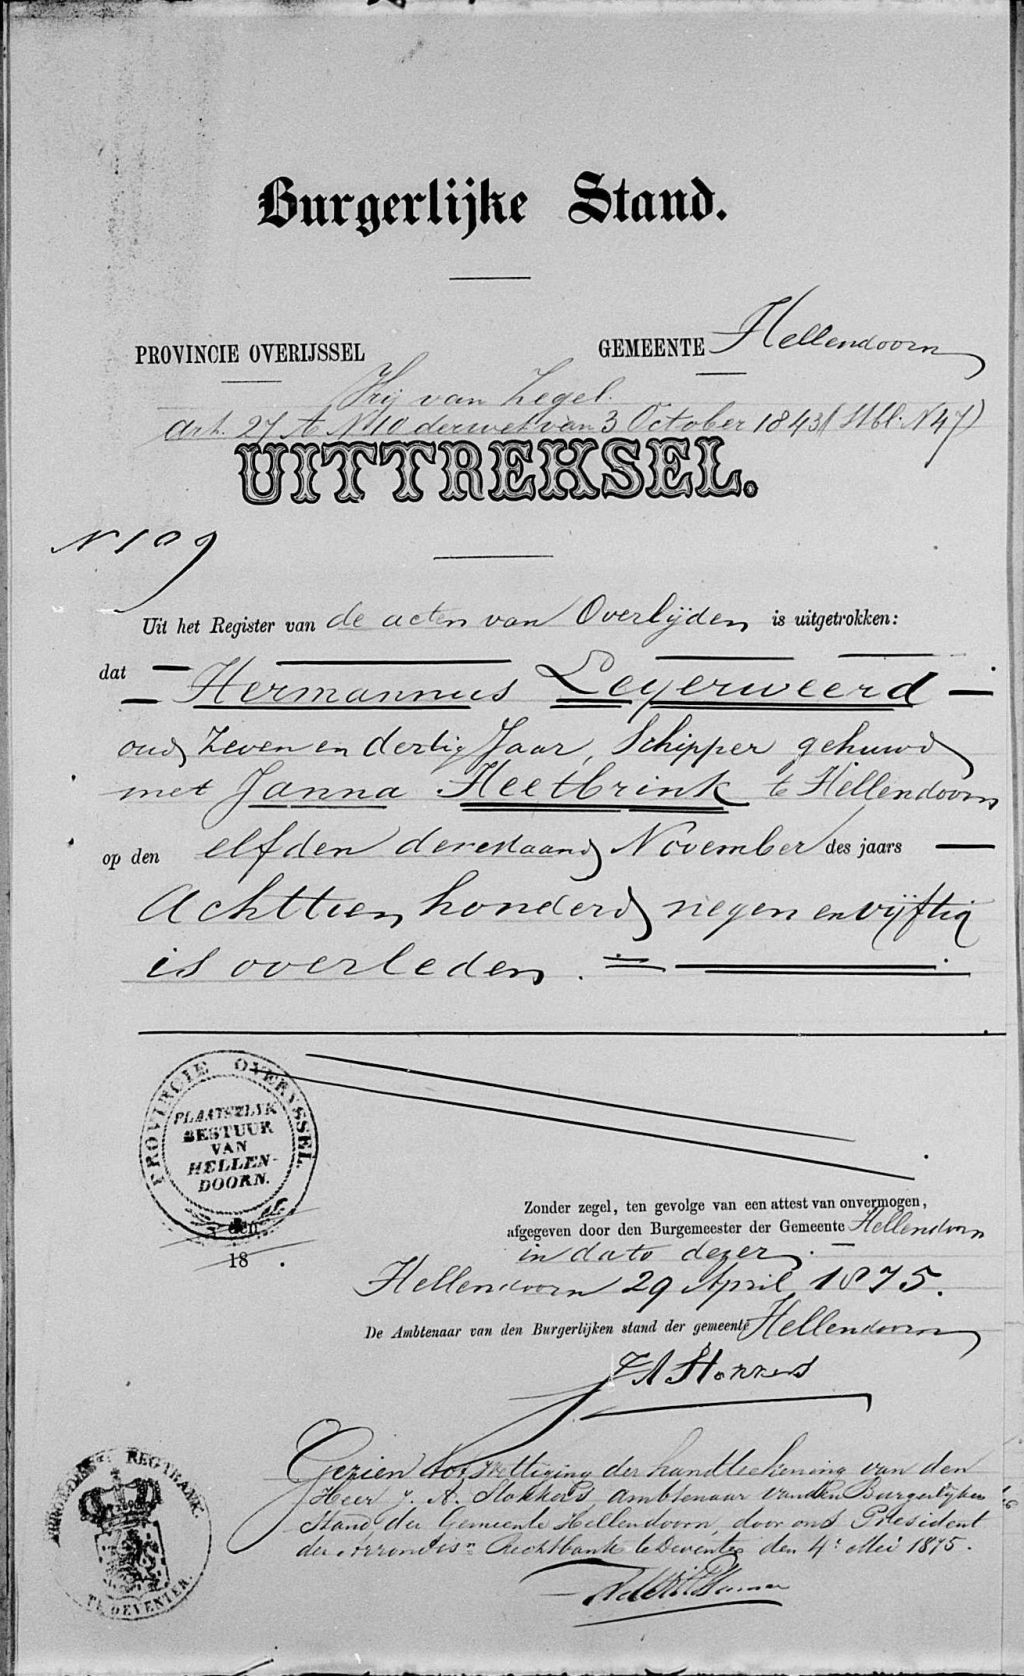 Burgerlijke Stand.
PROVINCIE OVERIJSSEL GEMEENTE Hellendoorn
Vrij van Zegel.
Art. 27 A No 10 der wet van 3 October 1843 (Stbl. N 47)
UITTREKSEL.
N 109
Uit het Register van de acten van Overlijden is uitgetrokken:
dat Hermannus Leyerweerd
oud Zeven en dertig Jaar, Schipper gehuwd
met Janna Heetbrink te Hellendoorn
op den elfden November des jaars
Achttien honderd negen en vijftig
is overleden.
PROVINCIE OVERYSSEL
PLAATSELYK
BESTUUR
VAN
HELLEN-
DOORN.
den
18 .
Zonder zegel, ten gevolge van een attest van onvermogen,
afgegeven door den Burgemeester der Gemeente Hellendoorn
in dato dezer.
Hellendoorn 29 April 1875.
De Ambtenaar van den Burgerlijken stand der gemeente Hellendoorn
J A Stokkers
Gezien tot wettiging der handteekening van den
Heer J. A. Stokkers, ambtenaar van den Burgerlijken
Stand der Gemeente Hellendoorn, door ons President
der Arrondisn Rechtbank te Deventer den 4 Mei 1875.
REGTBANK
TE DEVENTER.